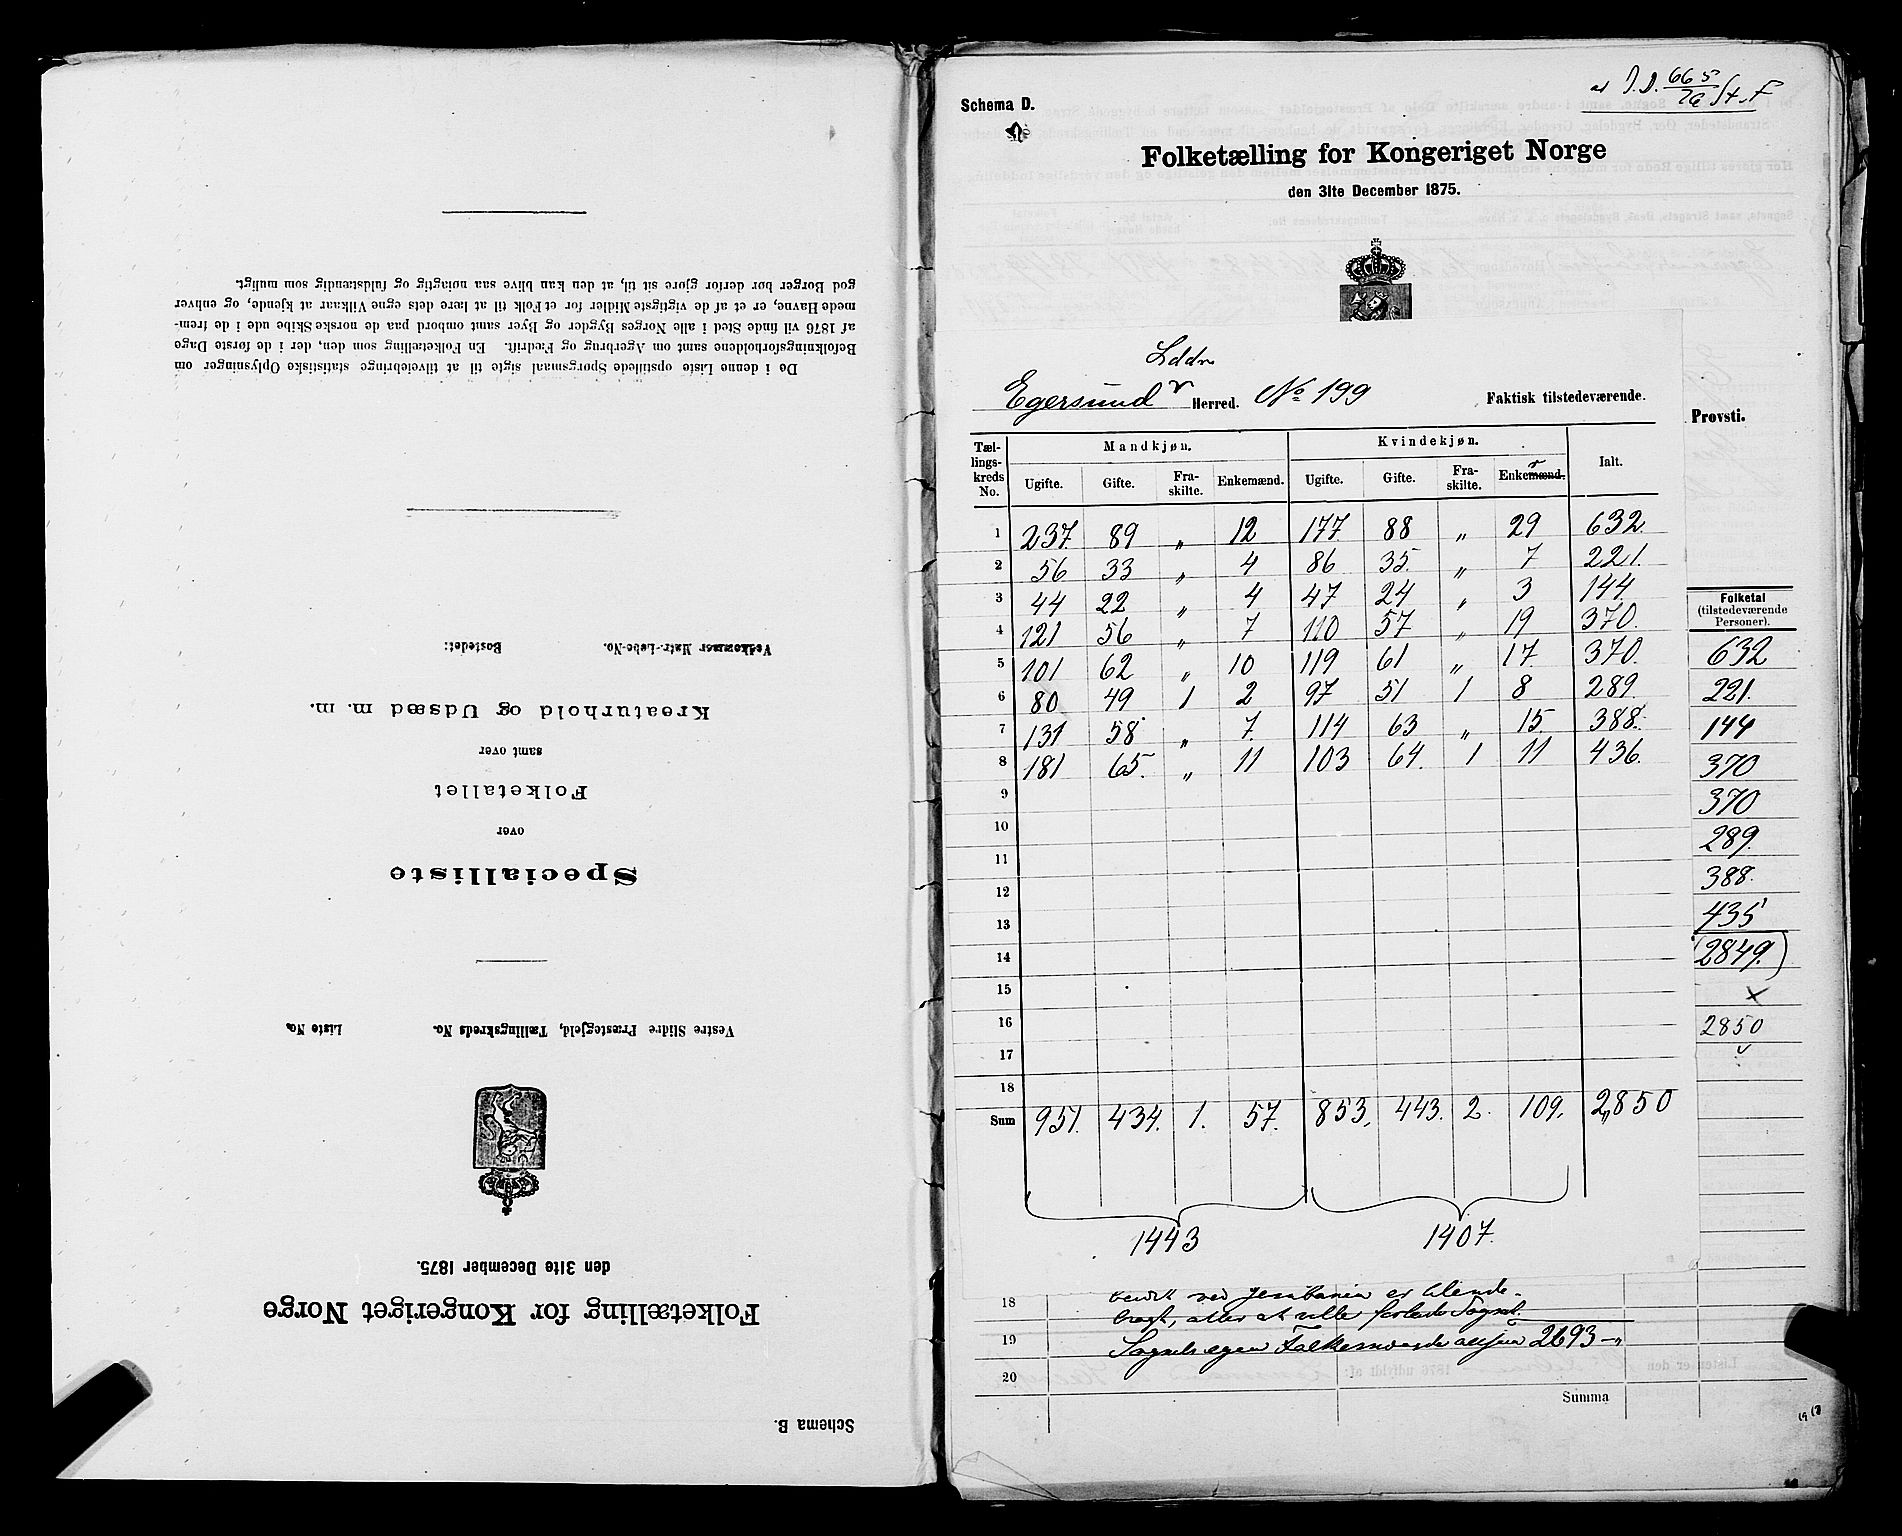 Schema B.
Folketælling for Kongeriget Norge
den 31te December 1875.
Vestre Slidre Præstegjeld, Tællingskreds No. Liste No.
Specialliste
over
Folketallet
samt over
Kreaturhold og Udsæd m. m.
Vedkommer Matr.-Løbe-No. Bostedet:
Da i denne Liste opstillede Spørgsmaal sigte til at tilveiebringe statistiske Oplysninger om
Befolkningsforholdene samt om Agerbrug og Fædrift. En Folketælling som den, der i de første Dage
af 1876 vil finde Sted i alle Norges Bygder og Byer samt ombord paa de norske Skibe ude i de frem-
mede Havne, er et af de vigtigste Midler for et Folk til at lære dets egne Vilkaar at kjende, og enhver
god Borger bør derfor gjøre sit til, at den kan blive saa nøiagtig og fuldstændig som muligt.
Schema D.
665
Folketælling for Kongeriget Norge
den 31te December 1875.
Egersund Herred. No 199 Faktisk tilstedeværende.
Provsti.
Tællingskreds No. Mandkjøn. Kvindekjøn. Ialt.
Ugifte. Gifte. Fraskilte. Enkemænd. Ugifte. Gifte. Fraskilte. Enkemænd.
1 237. 89 „ 12 177 88 „ 29 632.
2 56 33 „ 4 86 35. „ 7 221.
3 44 22 „ 4 47 24 „ 3 144.
4 121 56 „ 7 110 57 „ 19 370.
5 101 62 „ 10 119 61 „ 17. 370.
6 80 49 1 2 97 51 1 8 289.
7 131 58 „ 7. 114 63 „ 15. 388.
8 181 65. „ 11 103 64. 1 11 436.
9
10
11
12
13
14
15
16
17
18
Sum 951. 434. 1. 57. 853, 443. 2. 109, 2,850
1443 1407.
Folketal
(tilstedeværende
Personer).
632
221.
144
370
370
289.
388.
435
(2849.)
x
2850
18
19 2693
20
Summa